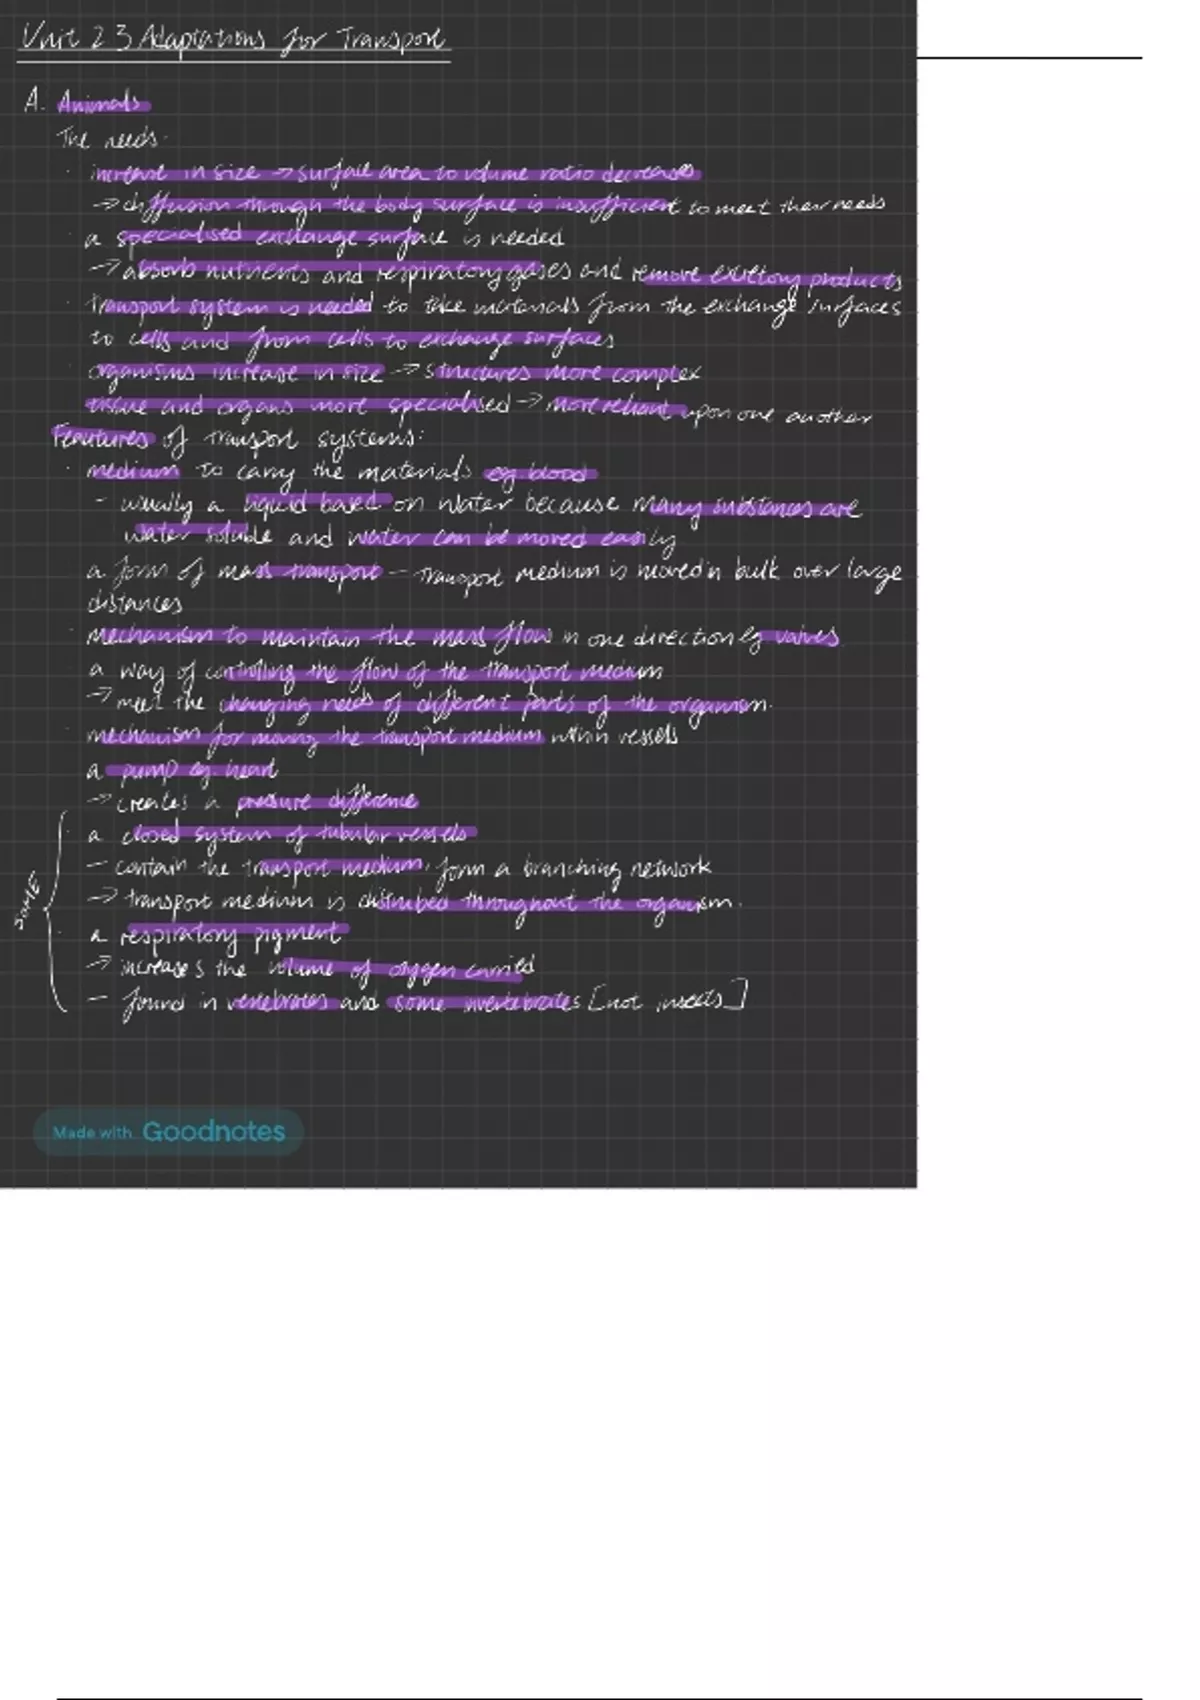 Unit 2 3 Adaptations for Transport
A. Animals
The needs:
· increase in size → surface area to volume ratio decreases
→ diffusion through the body surface is insufficient to meet their needs
· a specialised exchange surface is needed
→ absorb nutrients and respiratory gases and remove excretory products
· Transport system is needed to take materials from the exchange surfaces
to cells and from cells to exchange surfaces
· organisms increase in size → structures more complex
· tissue and organs more specialised → more reliant upon one another
Features of transport systems:
· medium to carry the materials eg blood
- usually a liquid based on water because many substances are
water soluble and water can be moved easily
· a form of mass transport - transport medium is moved in bulk over large
distances
· mechanism to maintain the mass flow in one direction eg valves
· a way of controlling the flow of the transport medium
→ meet the changing needs of different parts of the organism.
· mechanism for moving the transport medium within vessels
· a pump eg. heart
→ creates a pressure difference
some
· a closed system of tubular vessels
- contain the transport medium, form a branching network
→ transport medium is distributed throughout the organism.
· a respiratory pigment
→ increases the volume of oxygen carried
- found in vertebrates and some invertebrates [not insects]
Made with Goodnotes